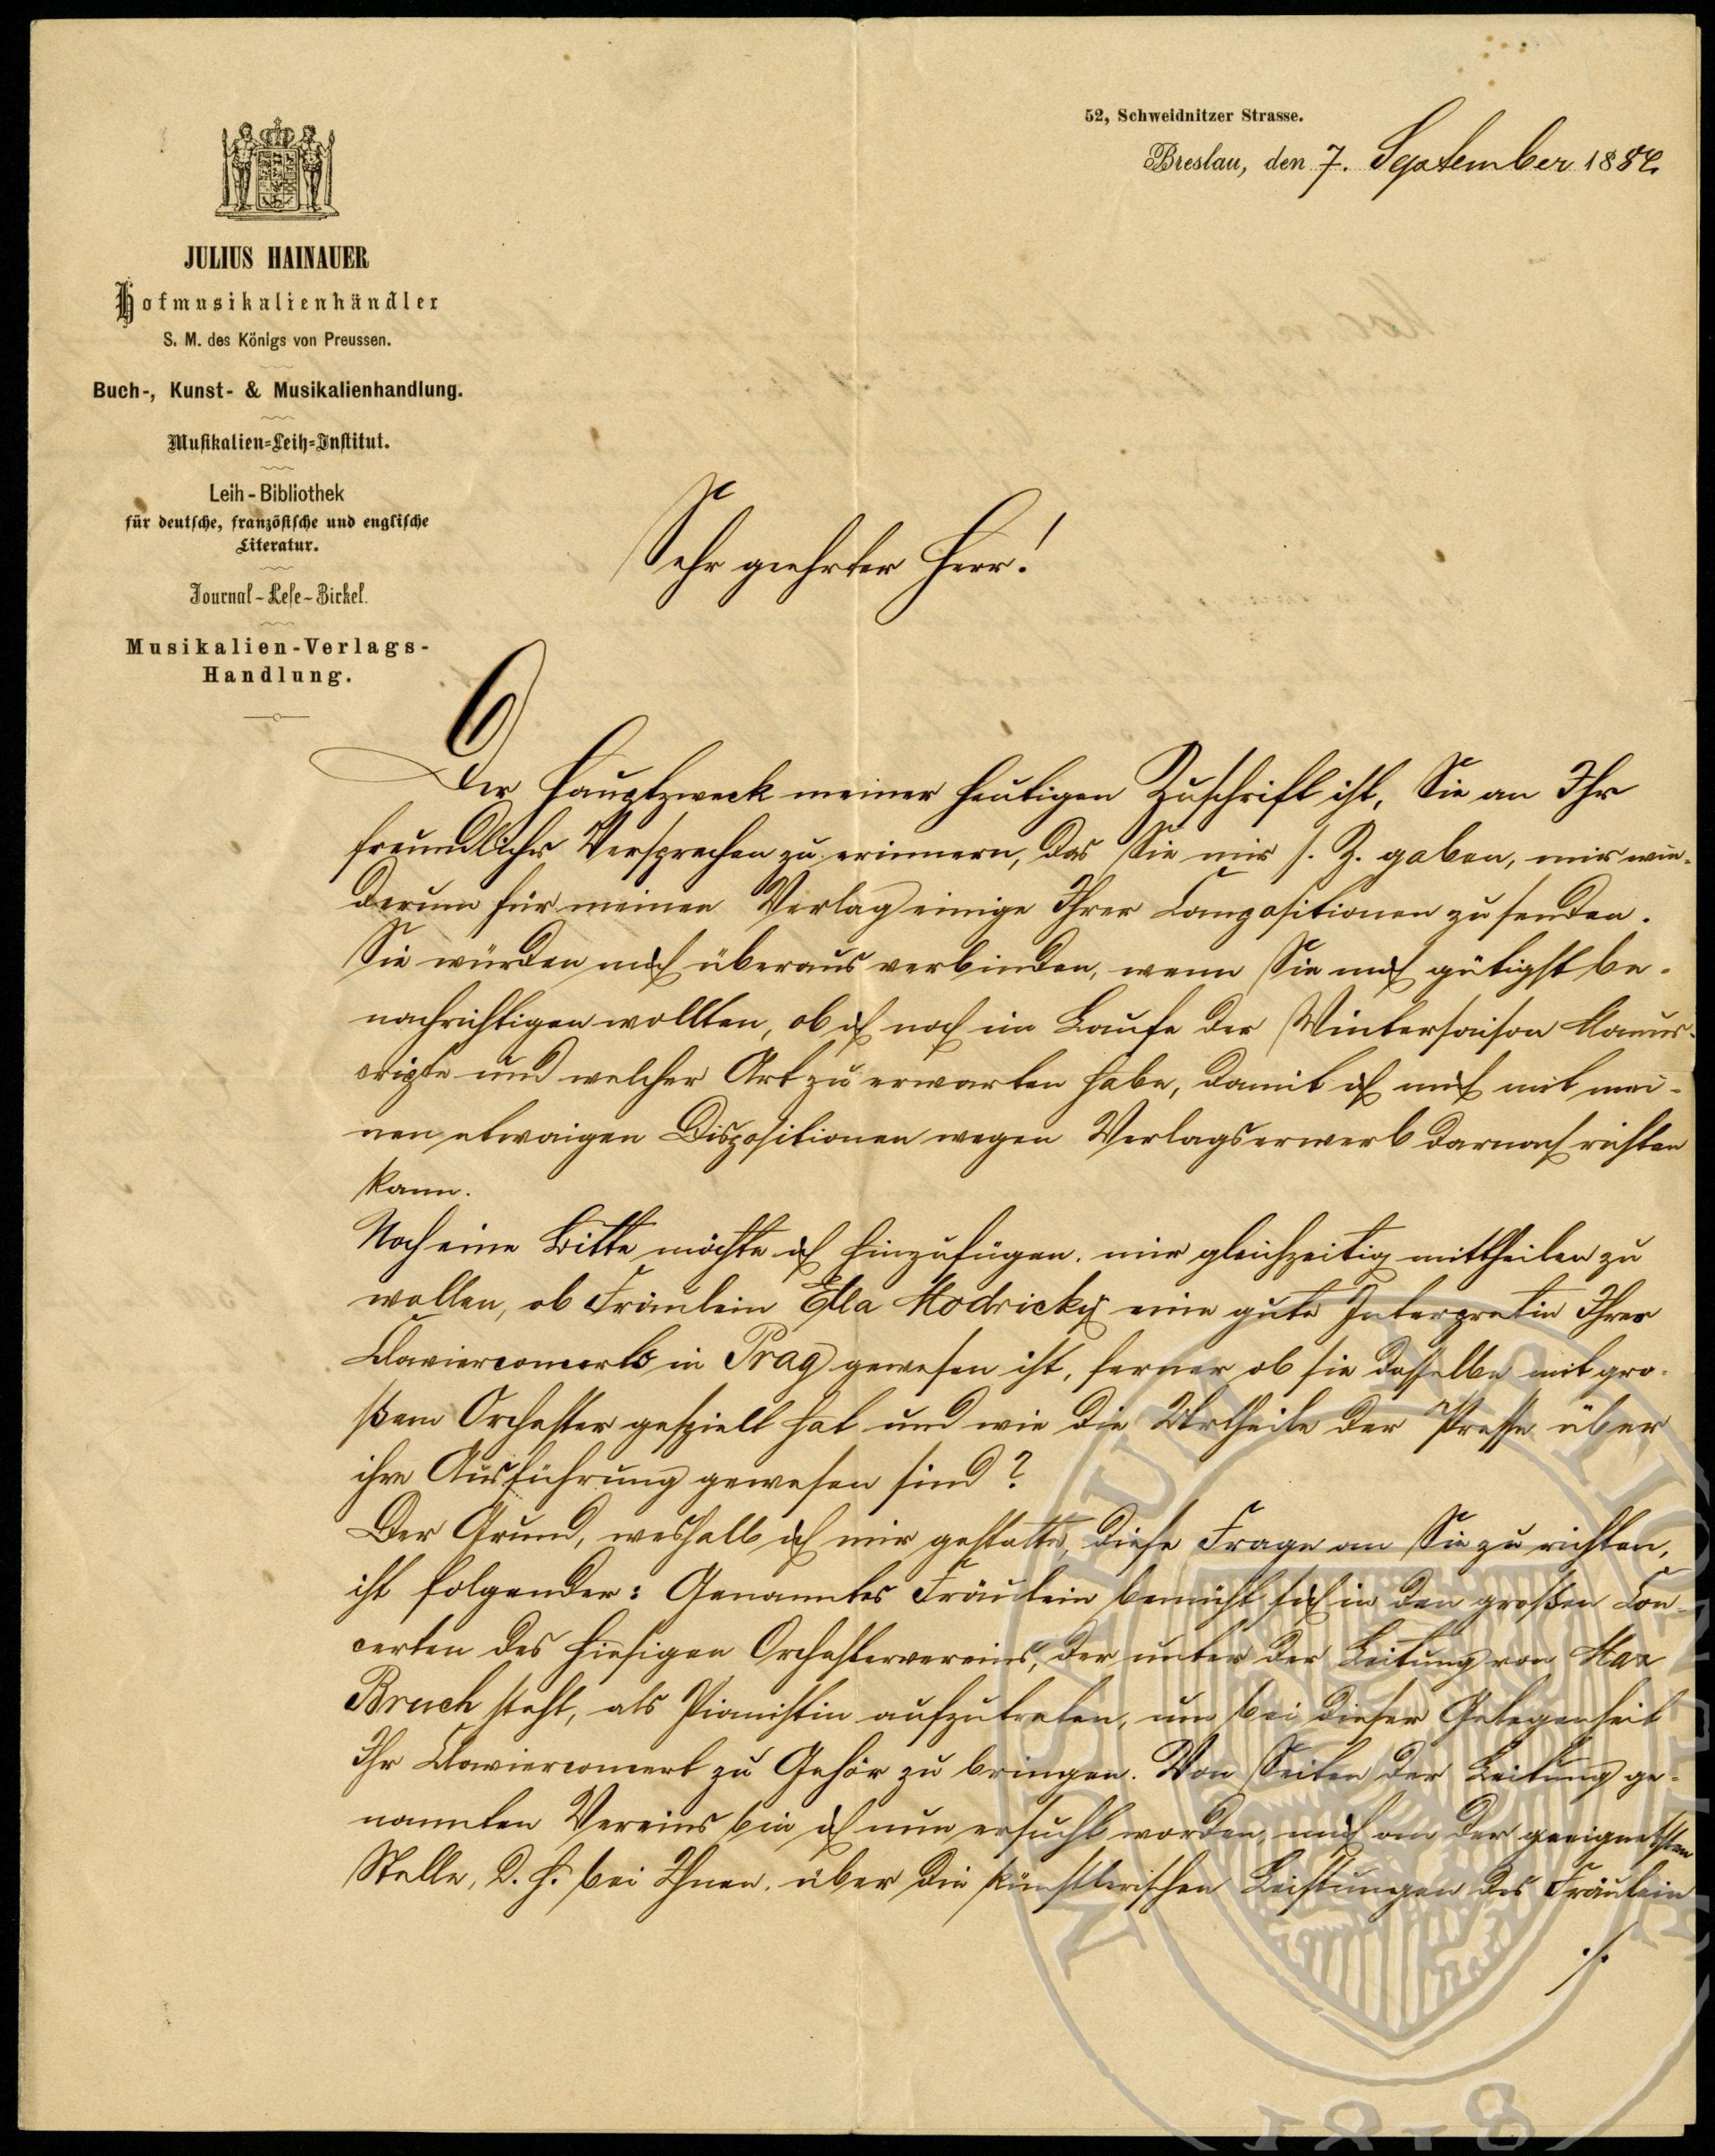 52, Schweidnitzer Strasse.
Breslau, den 7. September 1884.
JULIUS HAINAUER
Hofmusikalienhändler
S. M. des Königs von Preussen.
Buch-, Kunst- & Musikalienhandlung.
Musikalien-Leih-Institut.
Leih-Bibliothek
für deutsche, französische und englische
Literatur.
Journal-Lese-Zirkel.
Musikalien-Verlags-
Handlung.
Sehr geehrter Herr!
Der Hauptzweck meiner heutigen Zuschrift ist, Sie an Ihr
freundliches Versprechen zu erinnern, das Sie mir s. Z. gaben, mir wie-
derum für meinen Verlag einige Ihrer Compositionen zu senden.
Sie würden mich überaus verbinden, wenn Sie mich gütigst be-
nachrichtigen wollten, ob ich noch im Laufe der Wintersaison Manus-
cripte und welcher Art zu erwarten habe, damit ich mich mit mei-
nen etwaigen Dispositionen wegen Verlagserwerb darnach richten
kann.
Noch eine Bitte möchte ich hinzufügen, mir gleichzeitig mittheilen zu
wollen, ob Fräulein Ella Modricky eine gute Interpretin Ihres
Clavierconcerts in Prag gewesen ist, ferner ob sie dasselbe mit gro-
ßem Orchester gespielt hat und wie die Urtheile der Presse über
ihre Ausführung gewesen sind?
Der Grund, weshalb ich mir gestatte, diese Frage an Sie zu richten,
ist folgender: Genanntes Fräulein bemüht sich in den großen Con-
certen des hiesigen Orchestervereins, der unter der Leitung von Max
Bruch steht, als Pianistin aufzutreten, um bei dieser Gelegenheit
Ihr Clavierconcert zu Gehör zu bringen. Von Seiten der Leitung ge-
nannten Vereins bin ich nun ersucht worden, mich an der geeignetsten
Stelle, d. h. bei Ihnen, über die künstlerischen Leistungen des Fräulein
./.
MUSAEUM NATIONALE
1818